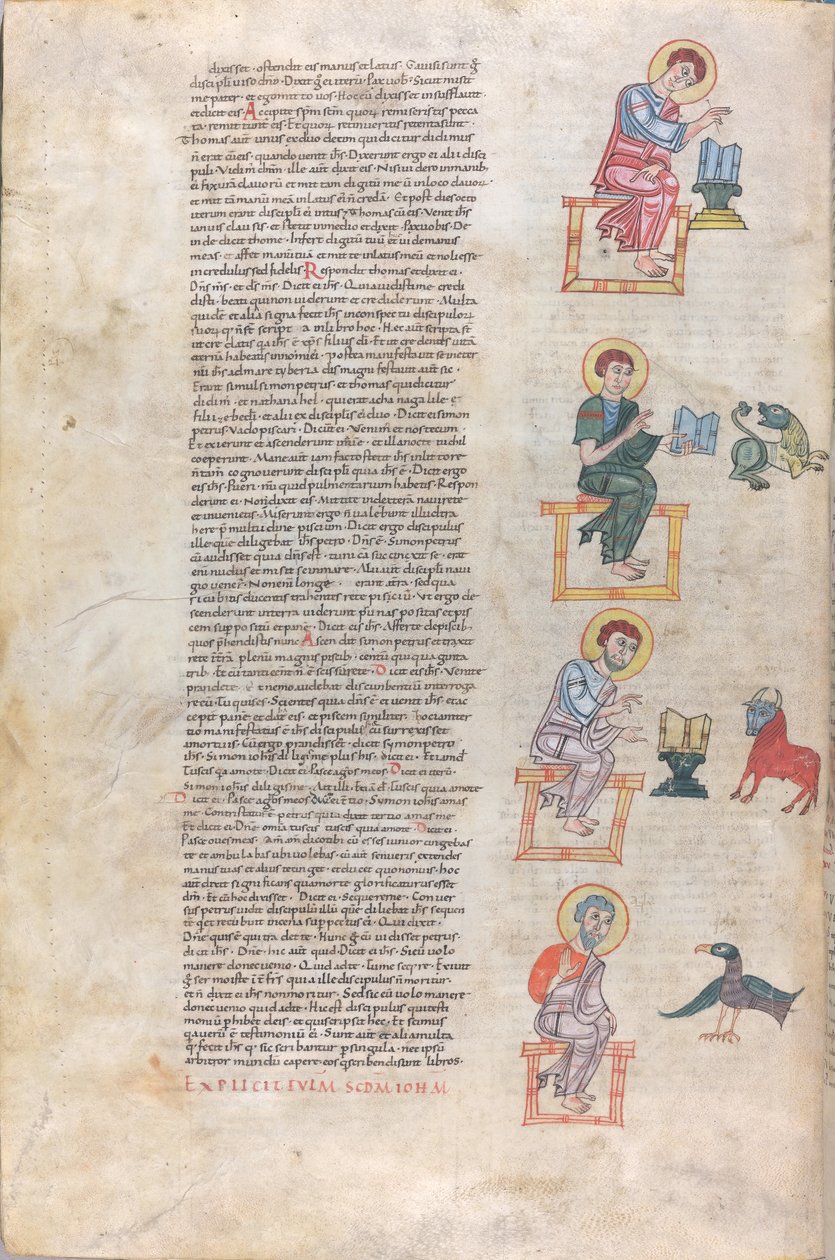 dixisset · ostendit eis manus et latus · Gavisi sunt g̃
discipłi viso dño · Dixit g̃ ei iterũ · Pax vob̃ · Sicut misit
me pater · et ego mitto vos · Hoc cũ dixisset insufflavit ·
et dicit eis · Accipite sp̃m sc̃m quorꝝ remiseritis pecca
ta · remittuntur eis · Et quorꝝ retinueritis retenta sunt ·
Thomas aut̃ unus ex duodecim qui dicitur didimus
ñ erat cũ eis · quando venit ih̃s · Dixerunt ergo ei alii disci
puli · Vidim̃ dñm · ille aut̃ dixit eis · Nisi videro in manib;
ei fixurã clavorũ et mittam digitũ meũ in loco clavorꝝ ·
et mittã manũ meã in latus ei ñ credã · Et post dies octo
iterum erant discipłi ei intus & Thomas cũ eis · Venit ih̃s
ianuis clausis · et stetit in medio et dixit · Pax vobis · De
inde dicit thome · Infer digitũ tuũ et vide manus
meas · et affer manũ tuã et mitte in latus meũ et noli esse
incredulus sed fidelis · Respondit thomas et dixit ei ·
Dñs m̃s · et ds̃ m̃s · Dicit ei ih̃s · Quia vidisti me credi
disti · beati qui non viderunt et crediderunt · Multa
quidẽ et alia signa fecit ih̃s in conspectu discipulorꝝ
suorꝝ q̃ ñ st̃ scripta in libro hoc · Hec aut̃ scripta st̃
ut credatis q̃a ih̃s ẽ xp̃s filius dĩ · Et ut credentes vitã
eternã habeatis in nomine ei · Postea manifestavit se iterũ
ih̃s ad mare tyberiadis · manifestavit aut̃ sic ·
Erant simul simon petrus · et thomas qui dicitur
didim̃ · et nathanahel · qui erat a chana galile · et
filii zebedi · et alii ex discipłis ei duo · Dicit ei simon
petrus · Vado piscari · Dicũt ei · Venim̃ et nos tecum ·
Et exierunt et ascenderunt in navẽ · et illa nocte nichil
coeperunt · Mane aut̃ iam facto stetit ih̃s in litore
ñ tam̃ cognoverunt discipłi quia ih̃s ẽ · Dicit ergo
eis ih̃s · Pueri · nũquid pulmentarium habetis · Respon
derunt ei · Non · Dixit eis · Mittite in dexterã navi rete
et invenietis · Miserunt ergo ñ valebunt illud tra
here p̃ multitudine piscium · Dicit ergo discipulus
ille quẽ diligebat ih̃s petro · Dñs ẽ · Simon petrus
cũ audisset quia dñs est · tunica succinxit se · erat
enĩ nudus et misit se in mare · Alii aut̃ discipłi navi
gio vener̃ · Non enĩ longe · erant a terra · sed quasi
cubitis ducentis trahentes rete pisciũ · Ut ergo de
scenderunt in terra viderunt prunas positas et pis
cem suppositũ et panẽ · Dicit eis ih̃s · Afferte de piscib;
quos p̃hendistis nunc · Ascendit simon petrus et traxit
rete ĩ t̃rã plenũ magnis piscib; centũ quinquaginta
trib; · Et cũ tanti eent ñ ẽ scissũ rete · Dicit eis ih̃s · Venite
prandete · Et nemo audebat discumbentiũ interroga
re eũ · Tu quis es · Scientes quia dñs ẽ · et venit ih̃s · et ac
cepit panẽ · et dabat eis · et piscem similiter · hoc iam ter
tio manifestatus ẽ ih̃s discipulis cũ surrexisset
a mortuis · Cũ ergo prandissent · dicit symon petro
ih̃s · Simon iohis diligis me plus his · dicit ei · Etiam dñe
tu scis q̃a amo te · Dicit ei · Pasce agnos meos · Dicit ei iterũ
Simon iohis diligis me · Ait illi · Etiã dñe · Tu scis · quia amo te
Dicit ei · Pasce agnos meos · Dicit ei tertio · Symon iohis amas
me · Contristatus ẽ petrus quia dixit tertio amas me ·
Et dicit ei · Dñe omnia tu scis · tu scis quia amo te · Dicit ei ·
Pasce oves meas · Am̃ am̃ dico tibi cũ esses iunior cingebas
te et ambulabas ubi volebas · cũ aut̃ senueris extendes
manus tuas et alius te cinget · et ducet quo non vis · hoc
aut̃ dixit significans qua morte glorificaturus esset
dm̃ · Et cũ hoc dixisset · Dicit ei · Sequere me · Conver
sus petrus vidit discipulũ illũ quẽ diliebat ih̃s sequen
tẽ q̃ et recubuit in cena sup pectus ei · Qui dixit ·
Dñe quis ẽ qui tradet te · Hunc g̃ cũ vidisset petrus ·
dicit ih̃s · Dñe · hic aut̃ quid · Dicit ei ih̃s · Si eũ volo
manere donec venio · Quid ad te · Tu me seq̃re · Exivit
g̃ sermo iste ĩt̃ fr̃s quia ille discipulus ñ moritur ·
et ñ dixit ei ih̃s non moritur · Sed sic eũ volo manere
donec venio quid ad te · Hic est discipulus qui testi
moniũ p̃hibet de his · et qui scripsit hec · Et scimus
q̃a verũ ẽ testimoniũ ei · Sunt aut̃ et alia multa
q̃ fecit ih̃s q̃ si scribantur p singula · nec ipsũ
arbitror mundũ capere · eos q̃ scribendi sunt libros ·
EXPLICIT EVLM SCDM IOHM